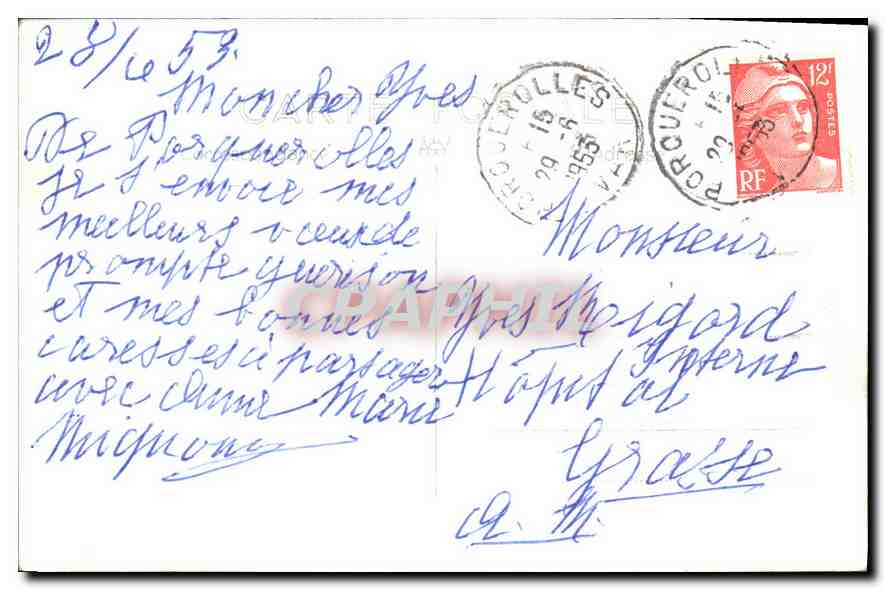 28/6 53.
Mon cher Yves
De Porquerolles
je t'envoie mes
meilleurs voeux de
prompte guerison
et mes bonnes
caresses à partager
avec Anne Marie
Mignony
CARTE POSTALE
PORQUEROLLES
15
29 -6
1953
VAR
PORQUEROLLES
15
29 -6
1953
12F
POSTES
RF
Monsieur
Yves Meigord
Interne
Hôpital
Grasse
A. M.
CPAPHIL